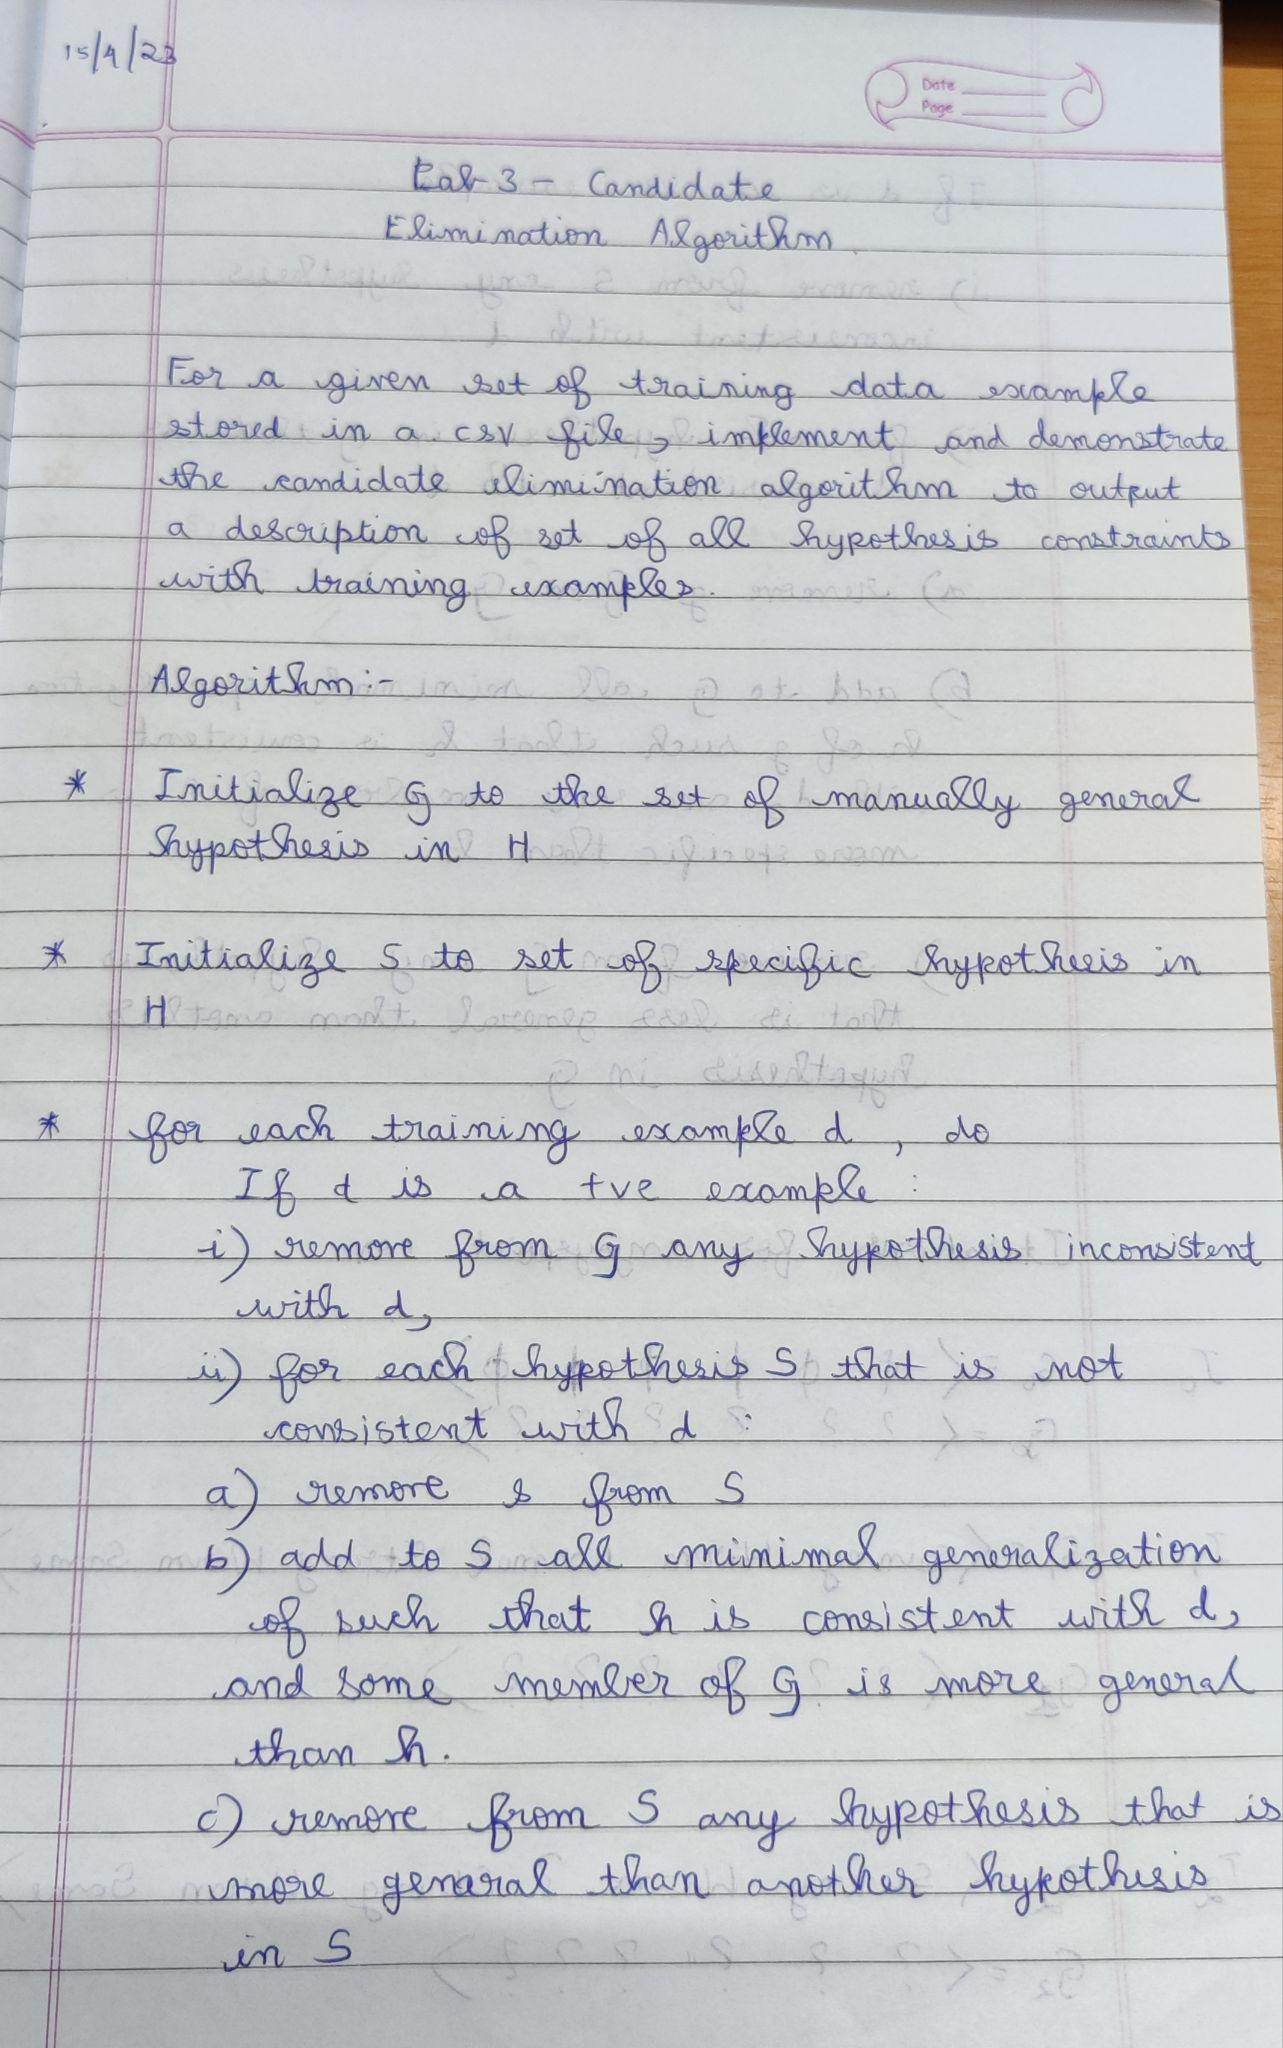 15/4/23
Date
Page
Lab 3 - Candidate
Elimination Algorithm.
For a given set of training data example
stored in a .csv file, implement and demonstrate
the candidate elimination algorithm to output
a description of set of all hypothesis constraints
with training examples.
Algorithm :-
* Initialize G to the set of manually general
hypothesis in H
* Initialize S to set of specific hypothesis in
H
* for each training example d , do
If d is a +ve example :
i) remove from G any hypothesis inconsistent
with d,
ii) for each hypothesis S that is not
consistent with d :
a) remove s from S
b) add to S all minimal generalization
of such that h is consistent with d,
and some member of G is more general
than h.
c) remove from S any hypothesis that is
more general than another hypothesis
in S